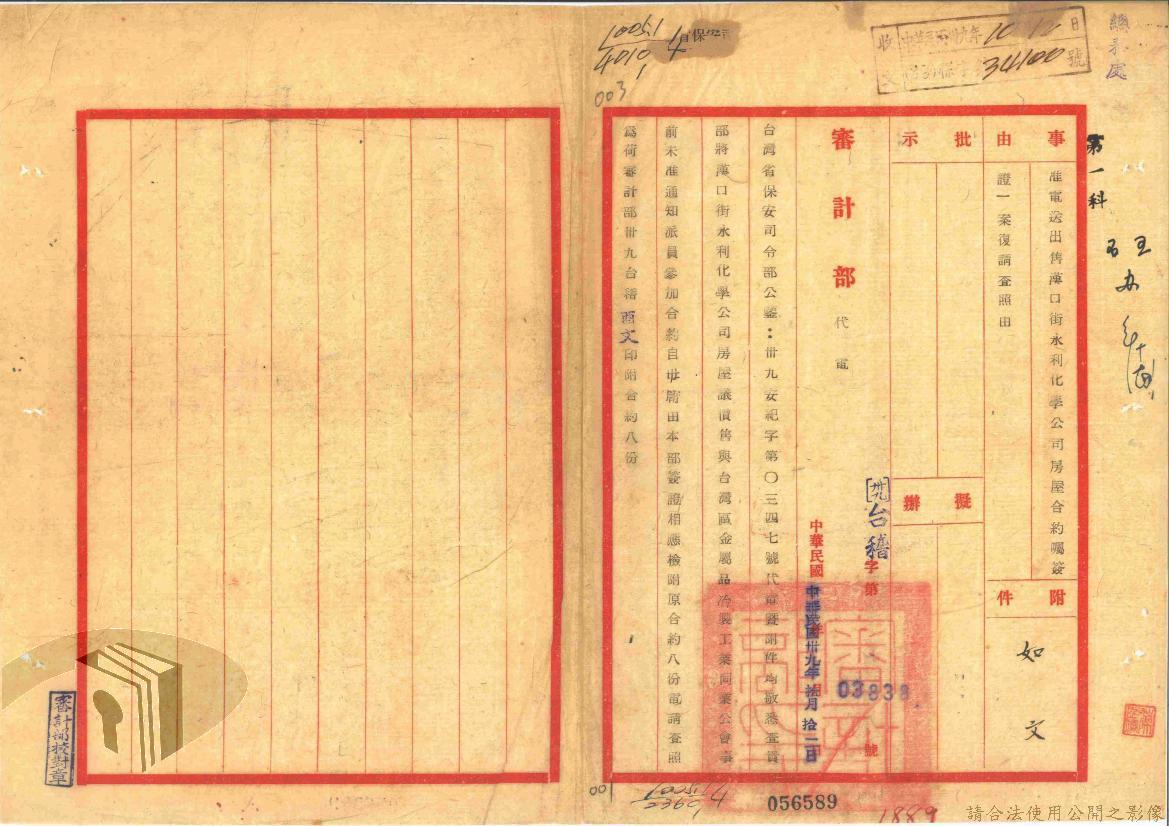 總務處
收文
34100
日
號
10051
4010
1
003
第一科
事由
准電送出售漢口街永利化學公司房屋合約囑簽
證一案復請查照由
附件
如文
批示
擬辦
審計部代電
[卅九]台稽字第03838號
中華民國卅九年拾月拾二日
台灣省保安司令部公鑒：卅九安祀字第〇三四七號代電暨附件均敬悉查貴
部將漢口街永利化學公司房屋議價售與台灣區金屬品冶製工業同業公會事
前未准通知派員參加合約自毋需由本部簽證相應檢附原合約八份電請查照
為荷審計部卅九台稽酉文印附合約八份
審計部校對章
001
056589
1889
請合法使用公開之影像